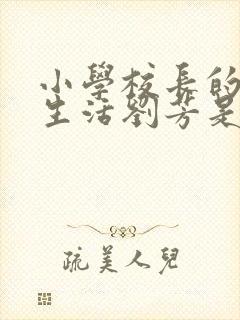 小學校長的
生活劉芳是
疏美人兒